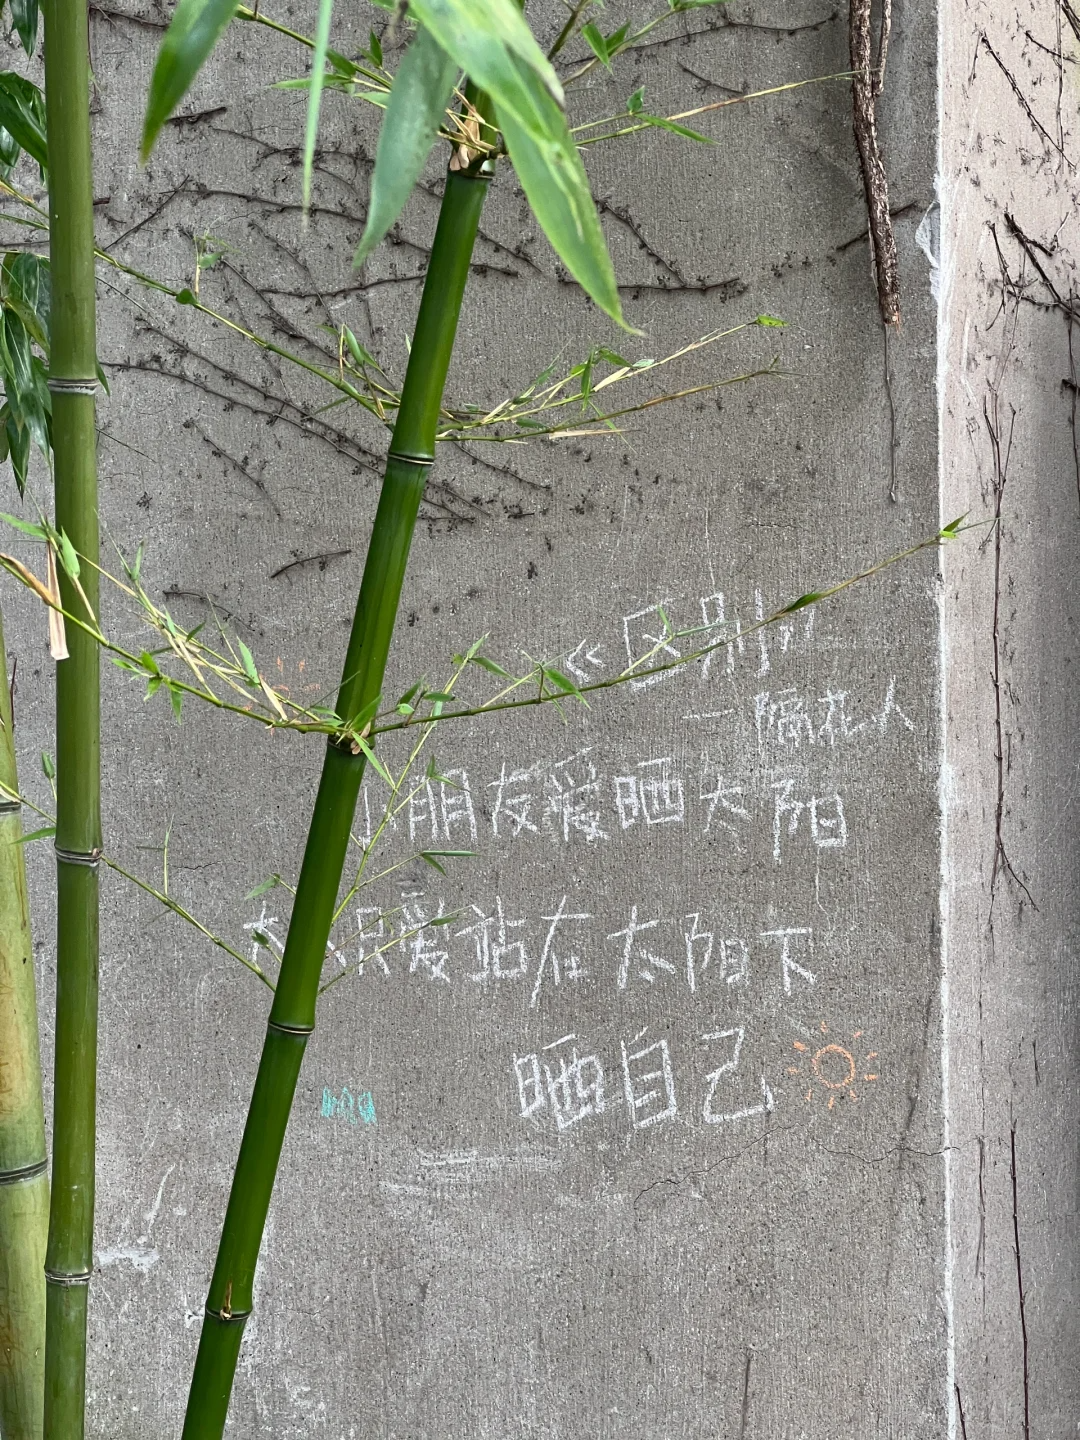 《区别》
—隔花人
小朋友爱晒太阳
大人只爱站在太阳下
晒自己